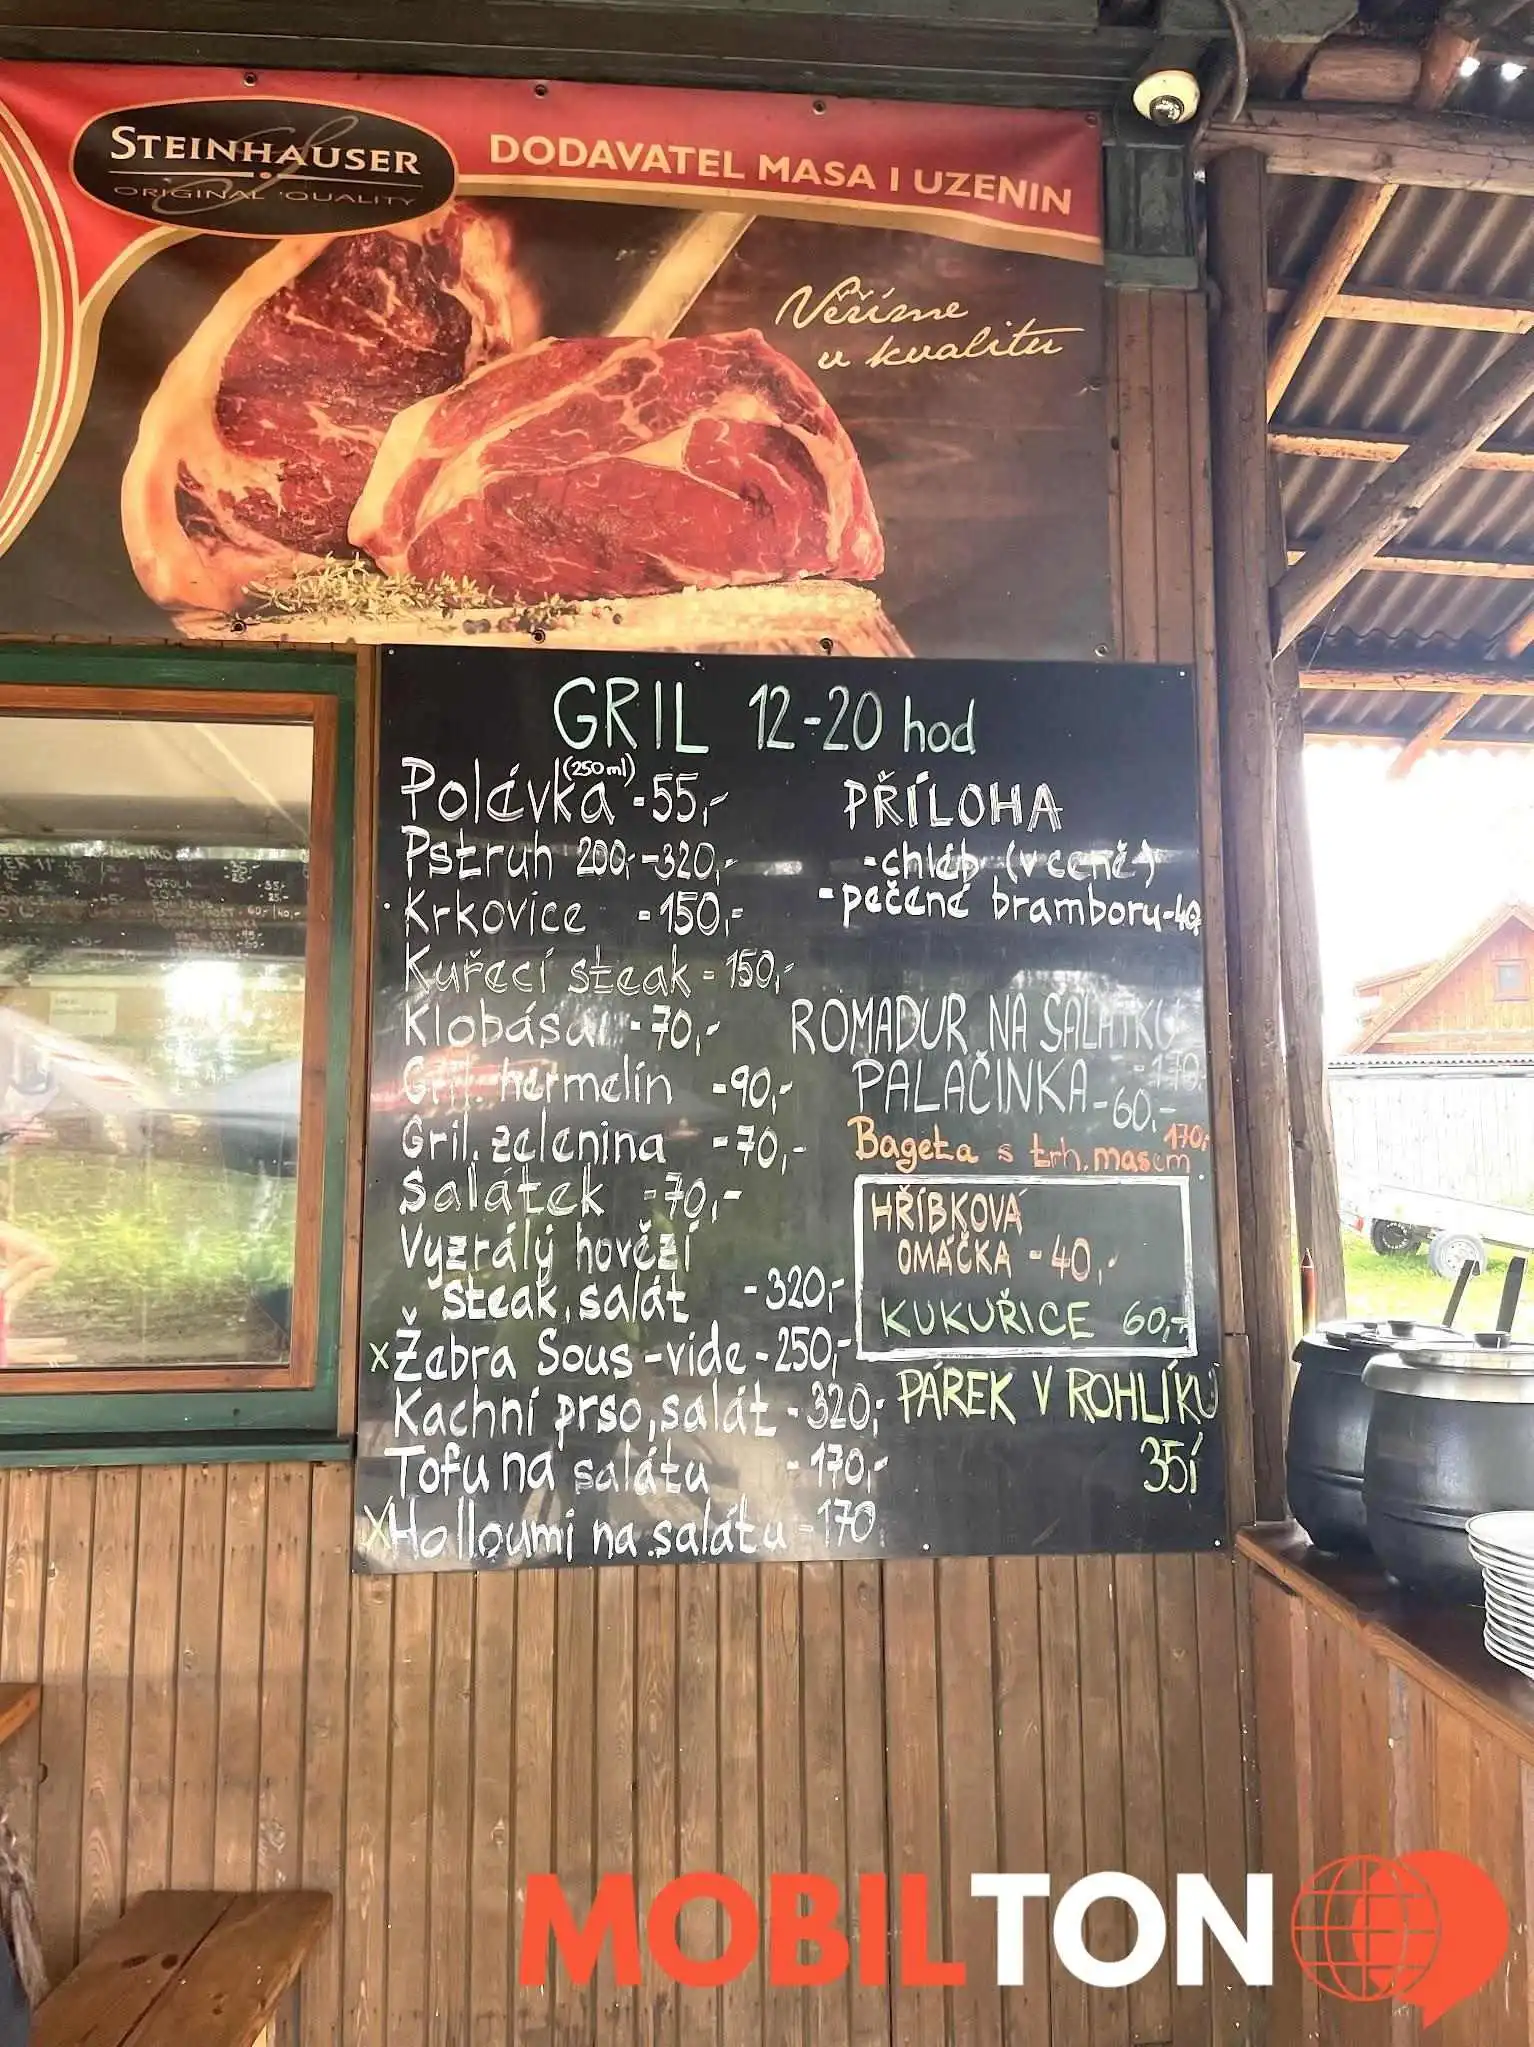 STEINHAUSER
ORIGINAL QUALITY
DODAVATEL MASA I UZENIN
Věříme
v kvalitu
GRIL 12-20 hod
Polávka (250ml) - 55,-
Pstruh 200,- - 320,-
Krkovice - 150,-
Kuřecí steak - 150,-
Klobása - 70,-
Gril. hermelín - 90,-
Gril. zelenina - 70,-
Salátek - 70,-
Vyzrálý hovězí
steak, salát - 320,-
x Žebra Sous-vide - 250,-
Kachní prso, salát - 320,-
Tofu na salátu - 170,-
x Halloumi na salátu - 170
PŘÍLOHA
- chléb (v ceně)
- pečené brambory - 40,-
ROMADUR NA SALÁTKU
- 170,-
PALAČINKA - 60,-
Bageta s trh. masem 170,-
HŘÍBKOVÁ
OMÁČKA - 40,-
KUKUŘICE 60,-
PÁREK V ROHLÍKU
35,-
MOBILTON